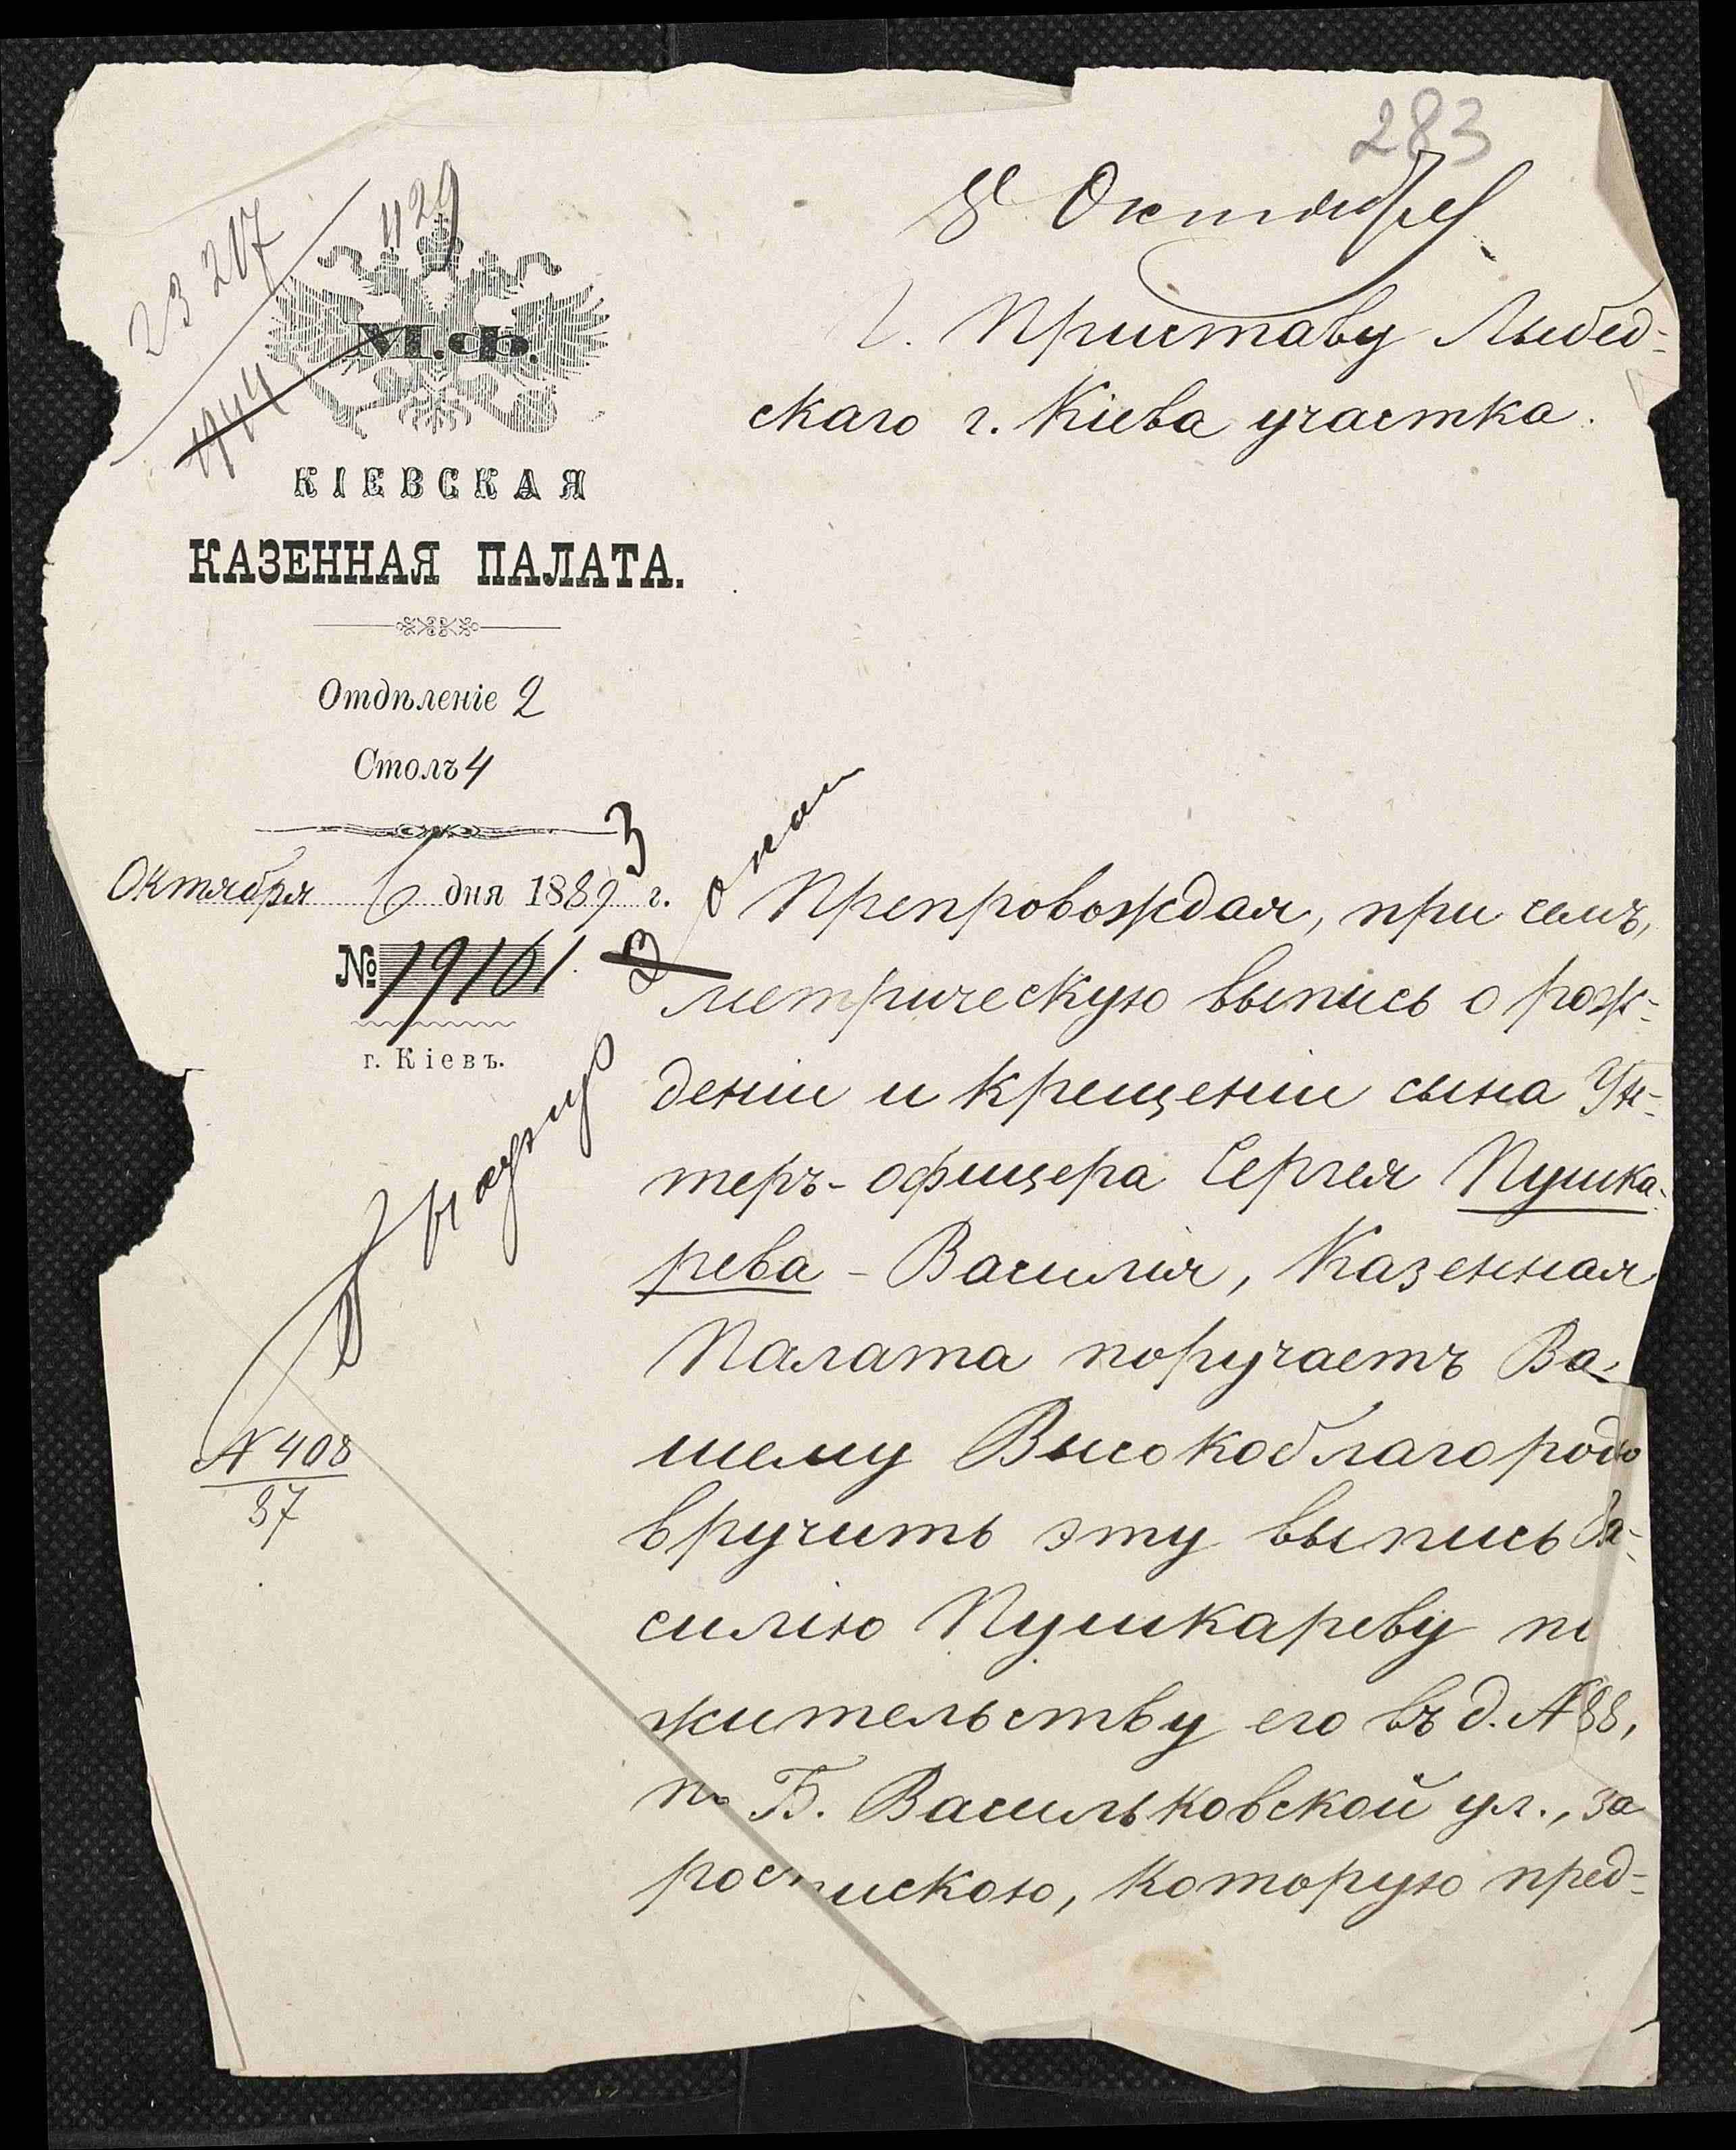 283
8 Октября
23 217
1129
1944
М.Ф.
Г. Приставу Лыбед-
скаго г. Кіева участка.
КІЕВСКАЯ
КАЗЕННАЯ ПАЛАТА.
Отдѣленіе 2
Столъ 4
Октября 6 дня 1889 г.
3
№ 19161.
г. Кіевъ.
Препровождая, при семъ,
метрическую выпись о рож-
деніи и крещеніи сына Ун-
теръ-офицера Сергея Пушка-
рева - Василія, Казенная
Палата поручаетъ Ва-
шему Высокоблагородію
вручить эту выпись Ва-
силію Пушкареву по
жительству его въ д. № 88,
по Б. Васильковской ул., за
роспискою, которую пред-
№ 408
37